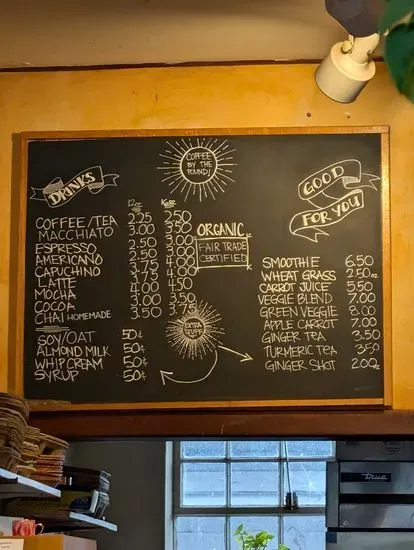 DRINKS
12oz 16oz
COFFEE/TEA 2.25 2.50
MACCHIATO 3.00
ESPRESSO 2.50
AMERICANO 2.50
CAPUCHINO 3.75
LATTE
MOCHA 4.00
COCOA 3.00 3.50
CHAI HOMEMADE 3.50
SOY/OAT 50¢
ALMOND MILK 50¢
WHIP CREAM 50¢
SYRUP 50¢
COFFEE
BY THE
POUND!
ORGANIC
FAIR TRADE
CERTIFIED
EXTRA
GOOD
FOR YOU
SMOOTHIE 6.50
WHEAT GRASS 2.50oz
CARROT JUICE 5.50
VEGGIE BLEND 7.00
GREEN VEGGIE 8.00
APPLE CARROT 7.00
GINGER TEA 3.50
TURMERIC TEA 3.50
GINGER SHOT 2.00oz
true